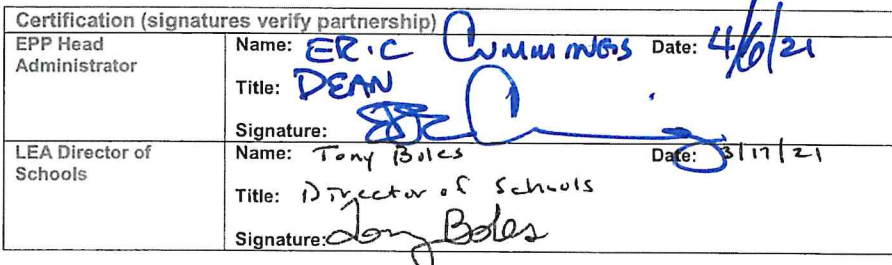 Certification (signatures verify partnership)
EPP Head Administrator
Name: ERIC CUMMINGS Date: 4/6/21
Title: DEAN
Signature:
LEA Director of Schools
Name: Tony Boles Date: 3/17/21
Title: Director of Schools
Signature: Tony Boles